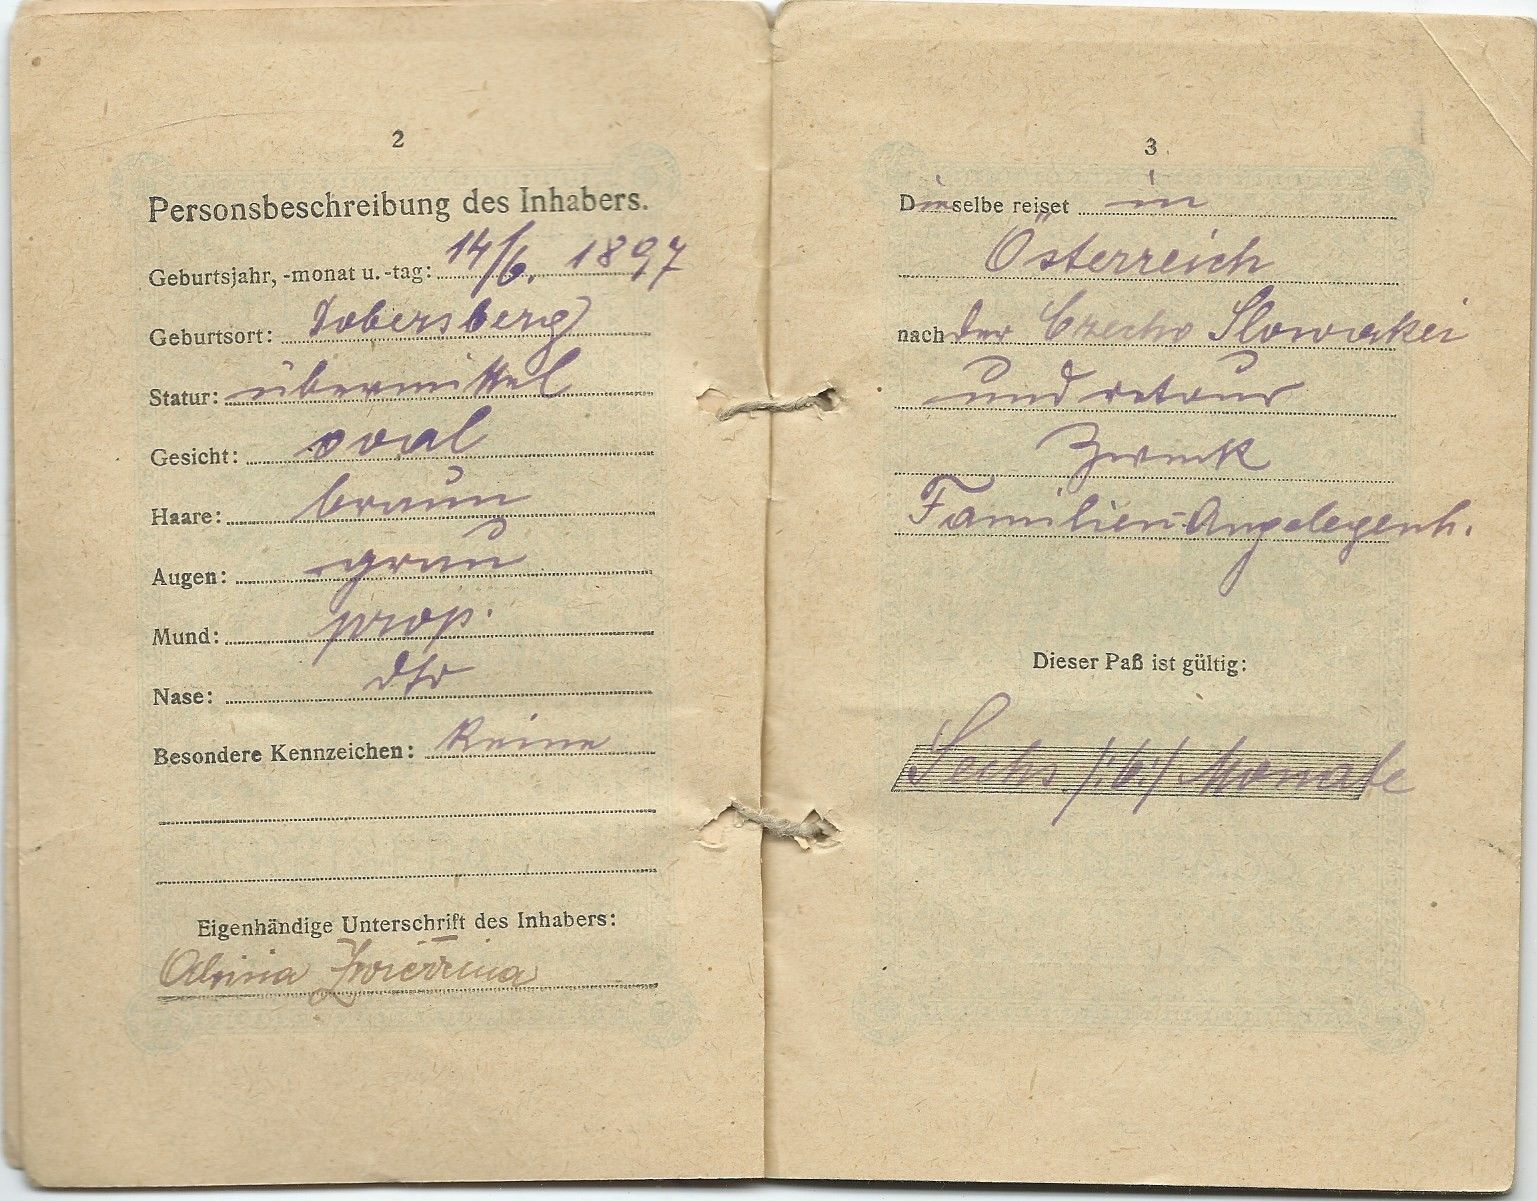 2
Personsbeschreibung des Inhabers.
Geburtsjahr, -monat u. -tag: 14/6. 1897
Geburtsort: Dobersberg
Statur: übermittel
Gesicht: oval
Haare: braun
Augen: grau
Mund: prop.
Nase: dto
Besondere Kennzeichen: Keine
Eigenhändige Unterschrift des Inhabers:
3
Dieselbe reiset in
Österreich
nach der Czecho Slowakei
und retour
Zweck
Familien-Angelegenh.
Dieser Paß ist gültig:
Sechs /:6:/ Monate